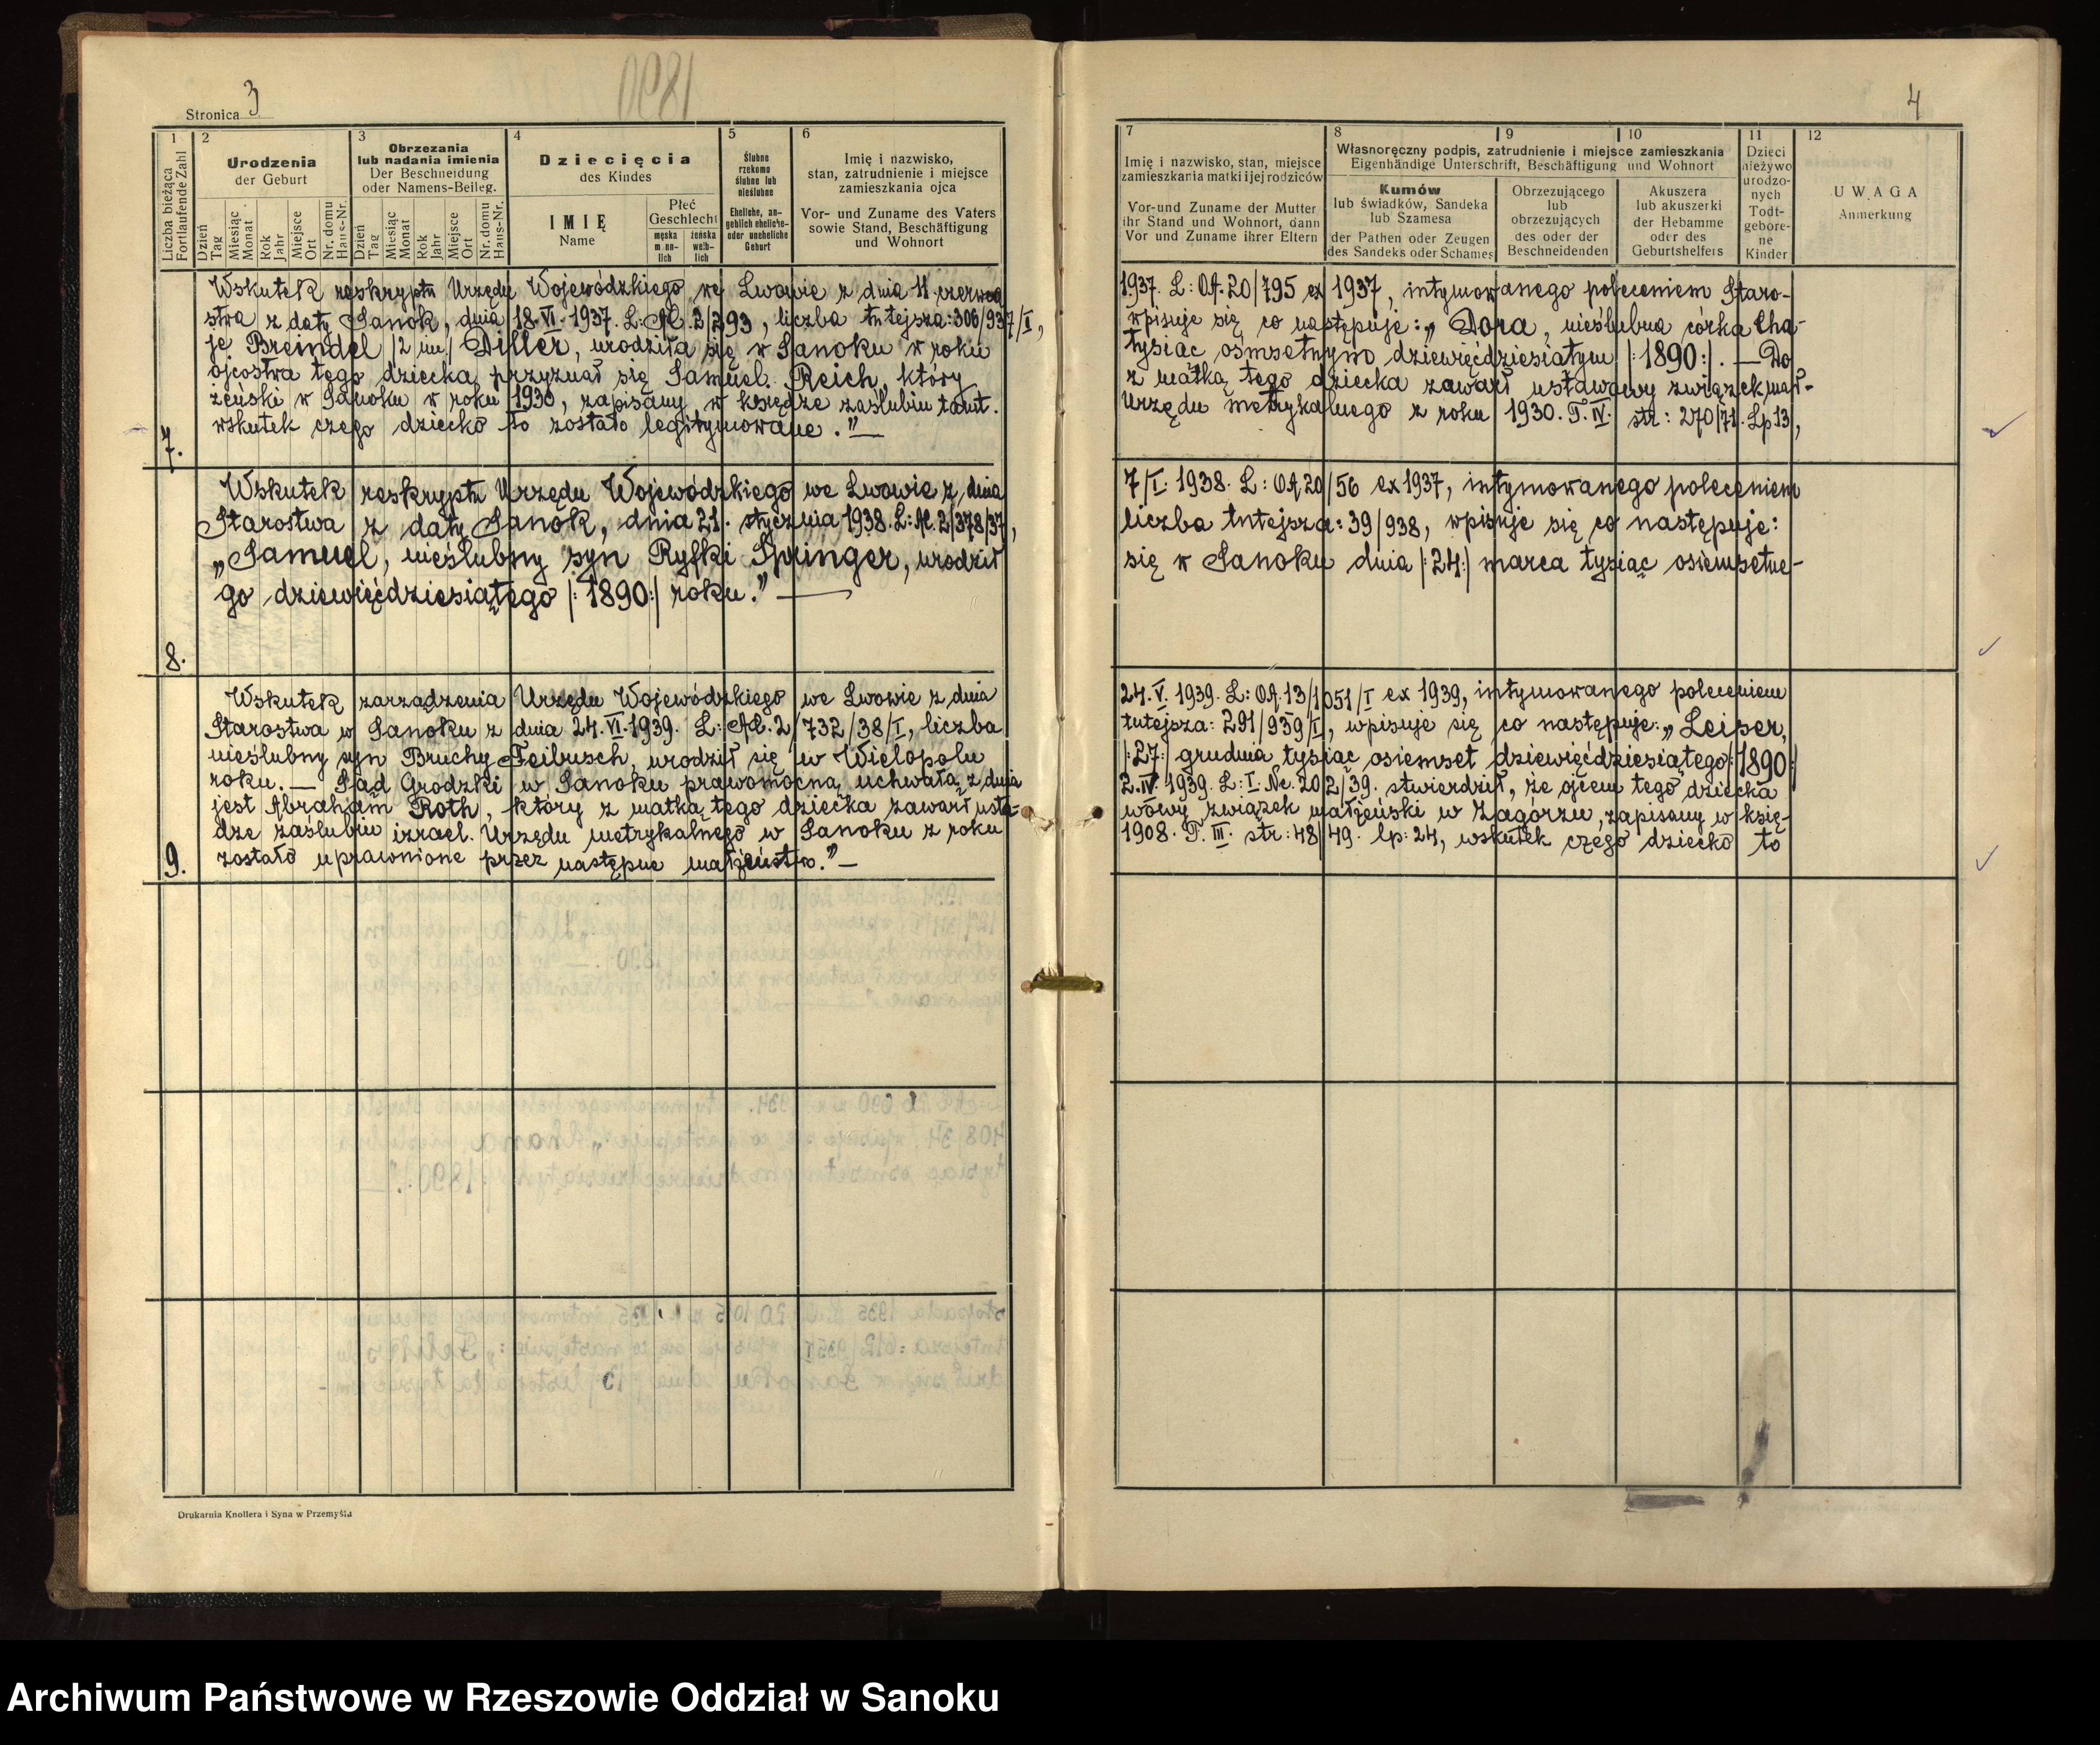 Stronica 3
1890
1
2
3
4
5
6
Liczba bieżąca
Fortlaufende Zahl
Urodzenia
der Geburt
Dzień
Tag
Miesiąc
Monat
Rok
Jahr
Miejsce
Ort
Nr. domu
Haus-Nr.
Obrzezania
lub nadania imienia
Der Beschneidung
oder Namens-Beileg.
Dzień
Tag
Miesiąc
Monat
Rok
Jahr
Miejsce
Ort
Nr. domu
Haus-Nr.
Dziecięcia
des Kindes
IMIĘ
Name
Płeć
Geschlecht
męska
männ-
lich
żeńska
weib-
lich
Ślubne
rzekomo
ślubne lub
nieślubne
Eheliche, an-
geblich eheliche-
oder uneheliche
Geburt
Imię i nazwisko,
stan, zatrudnienie i miejsce
zamieszkania ojca
Vor- und Zuname des Vaters
sowie Stand, Beschäftigung
und Wohnort
Wskutek reskryptu Urzędu Wojewódzkiego we Lwowie z dnia 11 czerwca
stwa z daty Sanok, dnia 18.VI.1937. L: AC. 2/293, liczba tutejsza: 306/937/I,
je Breindel /2 im./ Diller, urodziła się w Sanoku w roku
ojcostwa tego dziecka przyznał się Samuel Reich, który
żeński w Sanoku w roku 1930, zapisany w księdze zaślubin tamt.
wskutek czego dziecko to zostało legitymowane."—
7.
Wskutek reskryptu Urzędu Wojewódzkiego we Lwowie z dnia
Starostwa z daty Sanok, dnia 21. stycznia 1938. L: AC. 2/378/37,
„Samuel, nieślubny syn Ryfki Springer, urodził
go dziewięćdziesiątego |:1890:| roku."—
8.
Wskutek zarządzenia Urzędu Wojewódzkiego we Lwowie z dnia
Starostwa w Sanoku z dnia 24.VI.1939. L: AC. 2/732/38/I, liczba
nieślubny syn Bruchy Feibusch, urodził się w Wielopolu
roku. — Sąd Grodzki w Sanoku prawomocną uchwałą z dnia
jest Abraham Roth, który z matką tego dziecka zawarł usta-
dze zaślubin izrael. Urzędu metrykalnego w Sanoku z roku
zostało uprawnione przez następne małżeństwo."—
9.
Drukarnia Knollera i Syna w Przemyślu
4
7
8
9
10
11
12
Imię i nazwisko, stan, miejsce
zamieszkania matki i jej rodziców
Vor- und Zuname der Mutter
ihr Stand und Wohnort, dann
Vor und Zuname ihrer Eltern
Własnoręczny podpis, zatrudnienie i miejsce zamieszkania
Eigenhändige Unterschrift, Beschäftigung und Wohnort
Kumów
lub świadków, Sandeka
lub Szamesa
der Pathen oder Zeugen
des Sandeks oder Schames
Obrzezującego
lub
obrzezujących
des oder der
Beschneidenden
Akuszera
lub akuszerki
der Hebamme
oder des
Geburtshelfers
Dzieci
nieżywo
urodzo-
nych
Todt-
gebore-
ne
Kinder
UWAGA
Anmerkung
1937. L: OA. 20/795 ex 1937, intymowanego poleceniem Staro-
wpisuje się co następuje: „Dora, nieślubna córka Cha-
tysiąc ośmsetnym dziewięćdziesiątym |:1890:|. — Do
z matką tego dziecka zawarł ustawowy związek mał-
Urzędu metrykalnego z roku 1930. T. IV. str: 270/71. Lp 13,
7/I. 1938. L: OA 20/56 ex 1937, intymowanego poleceniem
liczba tutejsza: 39/938, wpisuje się co następuje:
się w Sanoku dnia |:24:| marca tysiąc osiemsetne-
24. V. 1939. L: OA. 13/1051/I ex 1939, intymowanego poleceniem
tutejsza: 291/939/I, wpisuje się co następuje: „Leiser,
|:27:| grudnia tysiąc osiemset dziewięćdziesiątego |:1890:|
2. IV. 1939. L: I. Nc. 202/39. stwierdził, że ojcem tego dziecka
wowy związek małżeński w Zagórzu, zapisany w księ-
1908. T. III. str: 48/49. lp: 24, wskutek czego dziecko to
Archiwum Państwowe w Rzeszowie Oddział w Sanoku